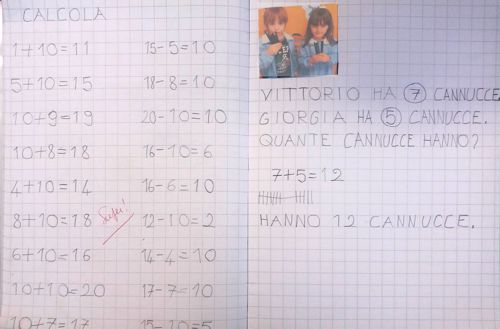 CALCOLA
1+10=11
5+10=15
10+9=19
10+8=18
4+10=14
8+10=18
6+10=16
10+10=20
10+7=17
15-5=10
18-8=10
20-10=10
16-10=6
16-6=10
12-10=2
14-4=10
17-7=10
15-10=5
Super!
VITTORIO HA 7 CANNUCCE
GIORGIA HA 5 CANNUCCE.
QUANTE CANNUCCE HANNO?
7+5=12
HANNO 12 CANNUCCE.